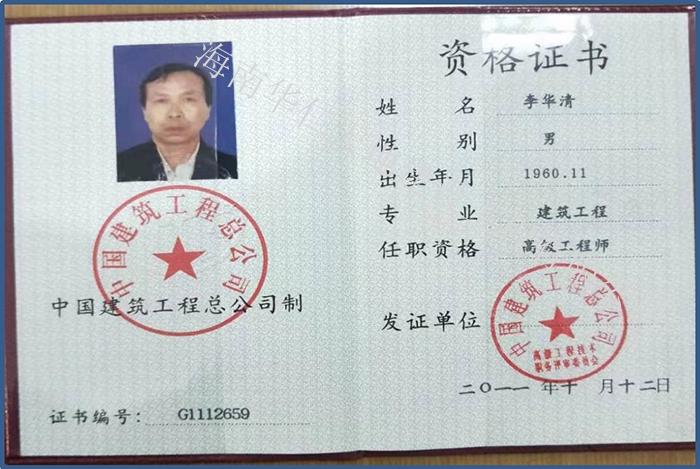 海南华
中国建筑工程总公司
中国建筑工程总公司制
证书编号: G1112659
资格证书
姓名 李华清
性别 男
出生年月 1960.11
专业 建筑工程
任职资格 高级工程师
发证单位
中国建筑工程总公司
高级工程技术
职务评审委员会
二〇一一年十月十二日